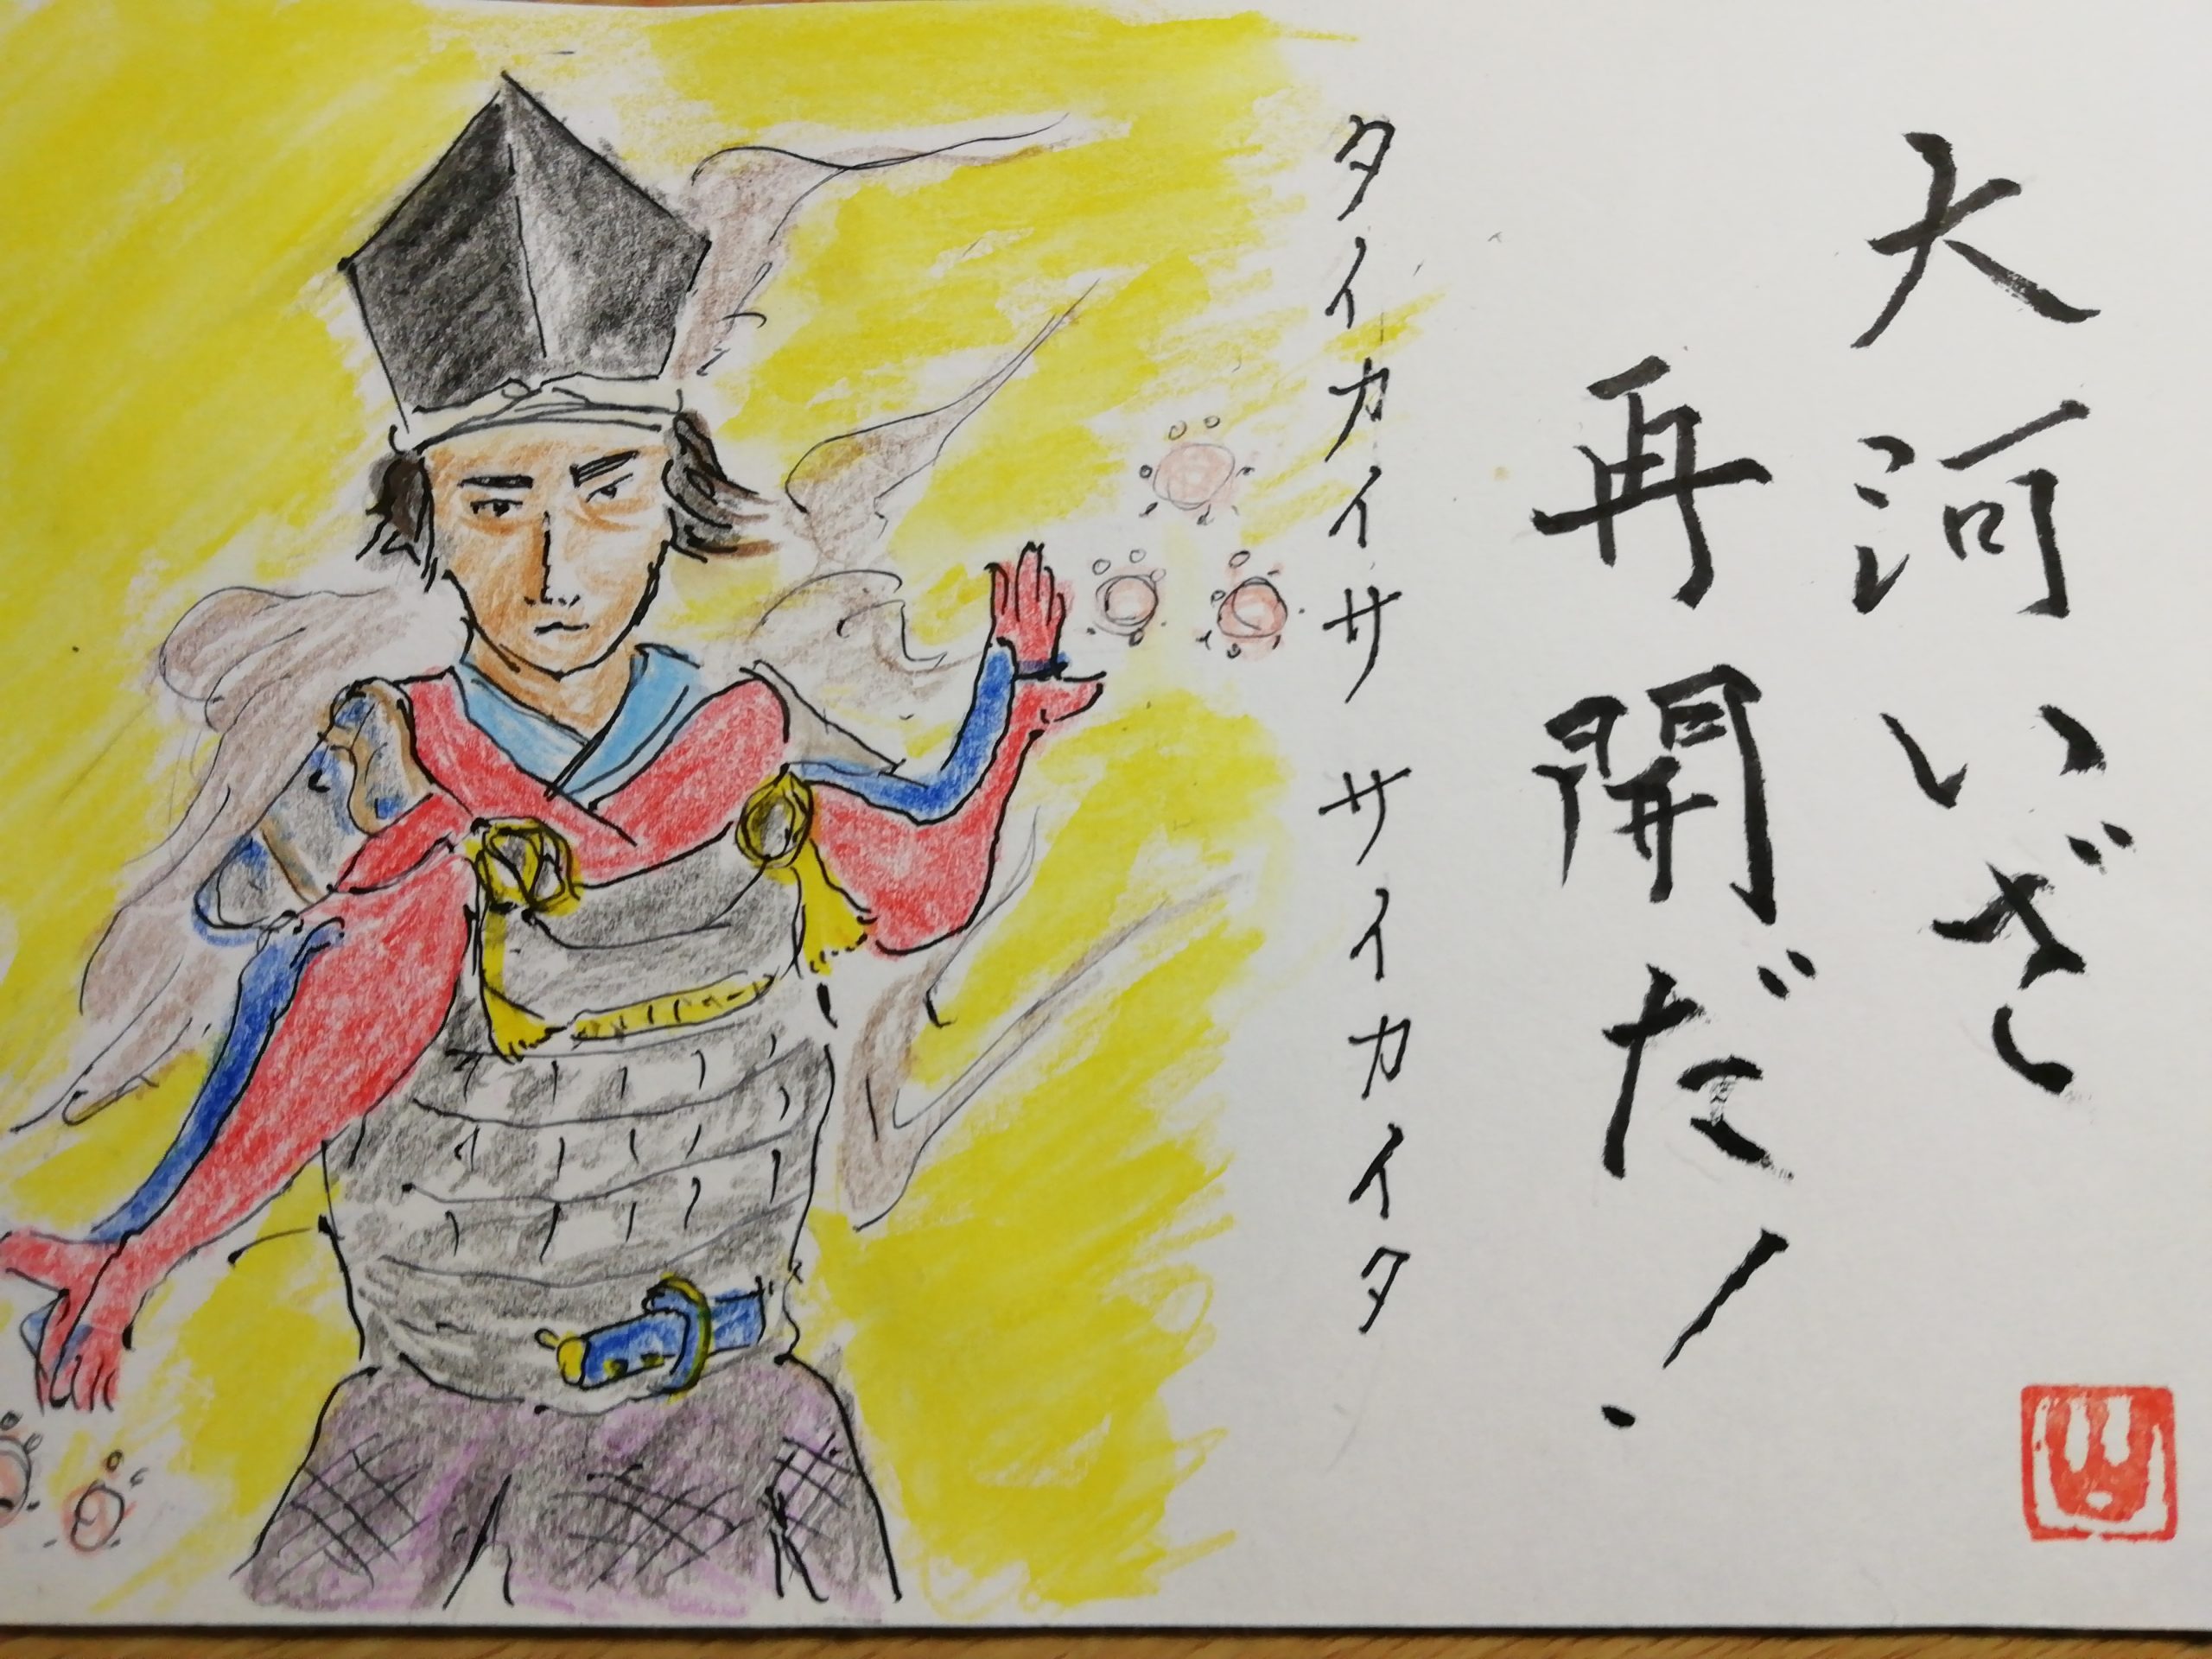 大河いざ
再開だ!
タイカイサ サイカイタ